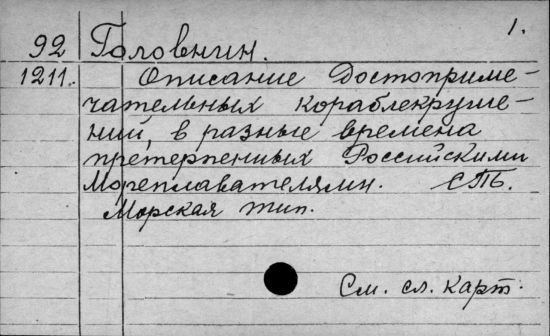 1.
92 Головнин.
1211. Описание Достоприме-
чательных кораблекруше-
ний, в разные времена
претерпенных Российскими
Мореплавателями. СПб.
Морская тип.
См. сл. карт.